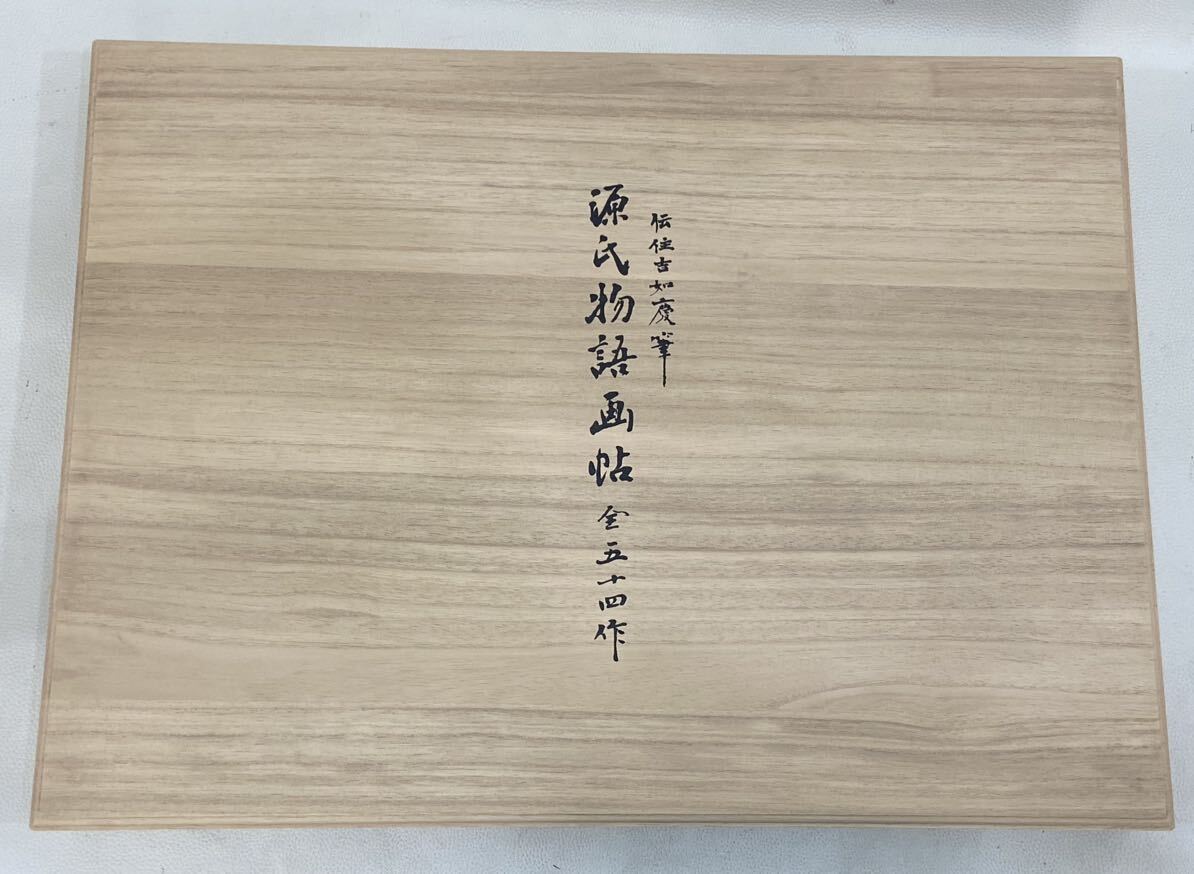 伝住吉如慶筆
源氏物語画帖 全五十四作